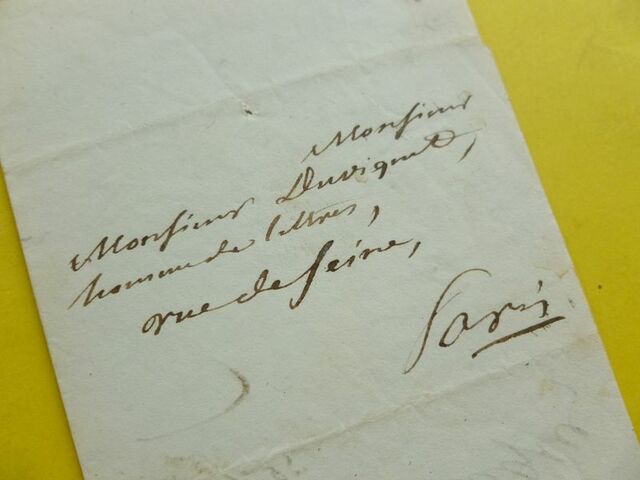 Monsieur
Monsieur Duviquet,
homme de lettres,
rue de Seine,
Paris